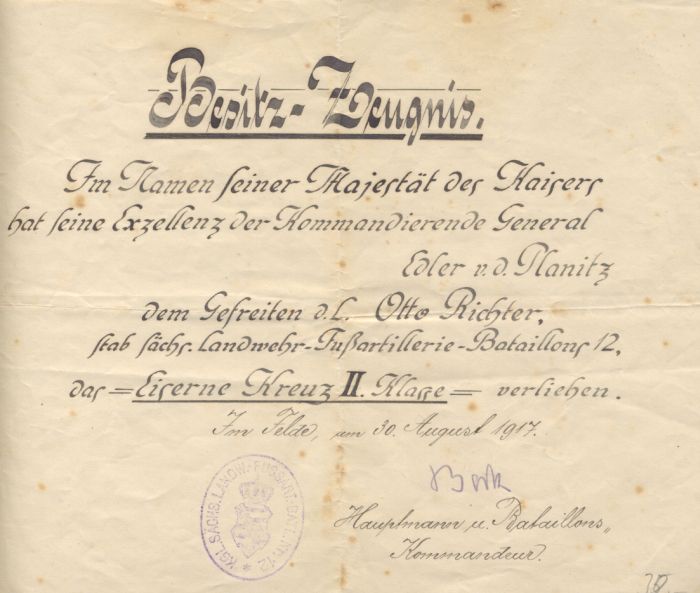 Besitz-Zeugnis.
Im Namen seiner Majestät des Kaisers
hat seine Exzellenz der Kommandierende General
Edler v. d. Planitz
dem Gefreiten d. L. Otto Richter,
stab sächs. Landwehr-Fußartillerie-Bataillons 12,
das =Eiserne Kreuz II. Klasse= verliehen.
Im Felde, am 30. August 1917.
Hauptmann u. Bataillons„
Kommandeur.
KGL. SÄCHS. LANDW. FUSSART. BATL. Nr. 12 *